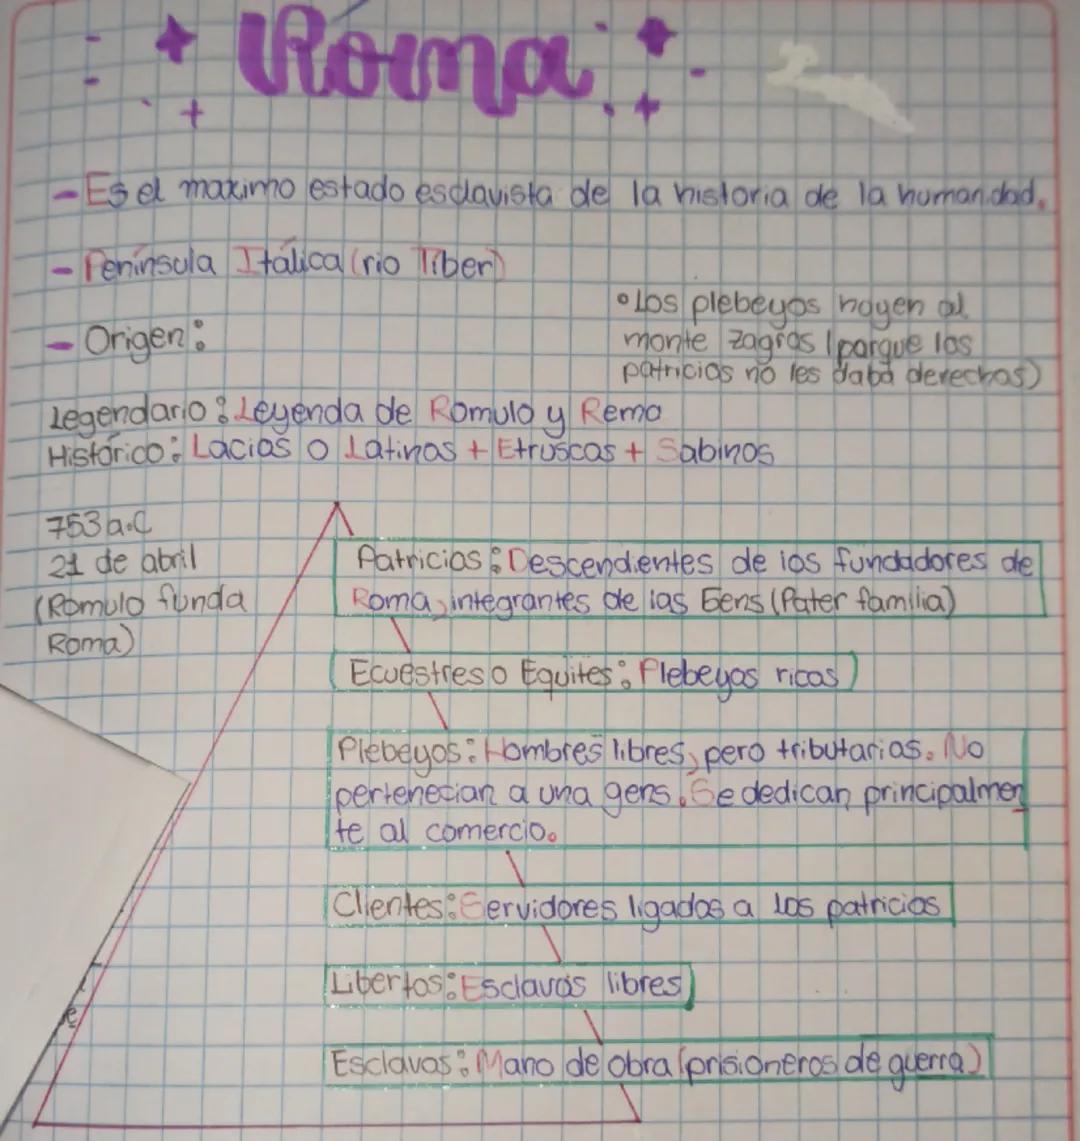 Roma
- Es el maximo estado esclavista de la historia de la humanidad.
- Península Itálica (rio Tiber)
- Origen:
• Los plebeyos huyen al
monte Zagros (porque los
patricios no les daba derechos)
Legendario: Leyenda de Romulo y Remo
Histórico: Lacios o Latinos + Etruscos + Sabinos
753 a.C
21 de abril
(Romulo funda
Roma)
Patricios: Descendientes de los fundadores de
Roma, integrantes de las Gens (Pater familia)
Ecuestres o Equites: Plebeyos ricos
Plebeyos: Hombres libres, pero tributarios. No
pertenecian a una gens. Se dedican principalmen
te al comercio.
Clientes: Servidores ligados a los patricios
Libertos: Esclavos libres
Esclavos: Mano de obra (prisioneros de guerra)